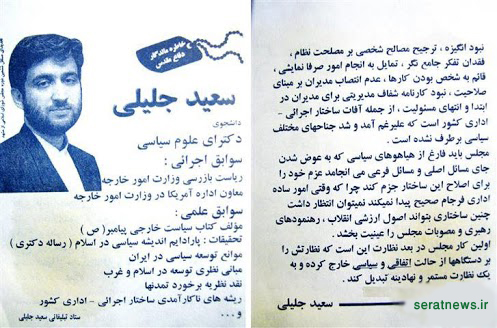 خاطره ماندگار
دفاع مقدس
سعید جلیلی
دانشجوی
دکترای علوم سیاسی
سوابق اجرائی :
ریاست بازرسی وزارت امور خارجه
معاون اداره آمریکا در وزارت امور خارجه
سوابق علمی :
مؤلف کتاب سیاست خارجی پیامبر( ص )
تحقیقات : پارادایم اندیشه سیاسی در اسلام ( رساله دکتری )
موانع توسعه سیاسی در ایران
مبانی نظری توسعه در اسلام و غرب
نقد نظریه برخورد تمدنها
ریشه های ناکارآمدی ساختار اجرائی - اداری کشور
و ...
ستاد تبلیغاتی سعید جلیلی
نبود انگیزه ، ترجیح مصالح شخصی بر مصلحت نظام ،
فقدان تفکر جامع نگر ، تمایل به انجام امور صرفا نمایشی ،
قائم به شخص بودن کارها ، عدم انتصاب مدیران بر مبنای
صلاحیت ، نبود کارنامه شفاف مدیریتی برای مدیران در
ابتدا و انتهای مسئولیت ، از جمله آفات ساختار اجرائی -
اداری کشور است که علیرغم آمد و شد جناحهای مختلف
سیاسی برطرف نشده است .
مجلس باید فارغ از هیاهوهای سیاسی که به عوض شدن
جای مسائل اصلی و مسائل فرعی می انجامد عزم خود را
برای اصلاح این ساختار جزم کند چرا که وقتی امور ساده
اداری فرجام صحیح پیدا نمیکند نمیتوان انتظار داشت
چنین ساختاری بتواند اصول ارزشی انقلاب ، رهنمودهای
رهبری و مصوبات مجلس را عینیت بخشد .
اولین کار مجلس در بعد نظارت این است که نظارتش را
بر دستگاهها از حالت اتفاقی و سیاسی خارج کرده و به
یک نظارت مستمر و نهادینه تبدیل کند .
سعید جلیلی
seratnews.ir